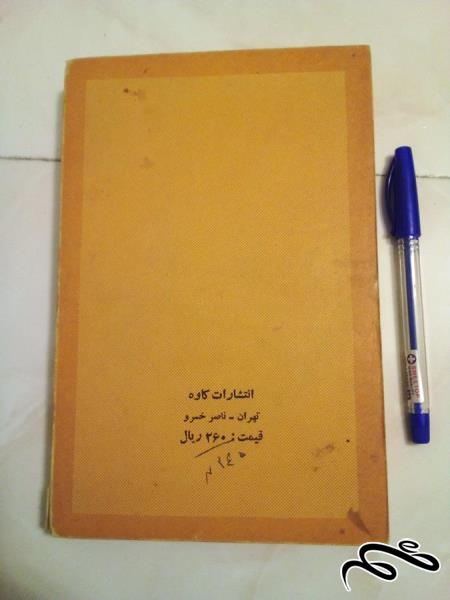 انتشارات کاوه
تهران - ناصر خسرو
قیمت: ۲۶۰ ریال